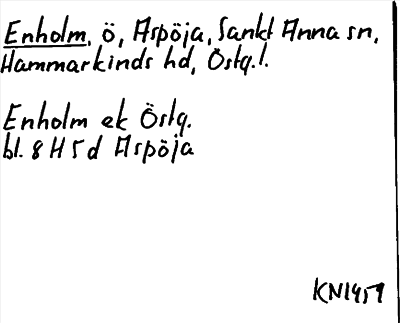 Enholm, ö, Aspöja, Sankt Anna sn,
Hammarkinds hd, Östg.l.
Enholm ek Östg.
bl. 8 H 5 d Aspöja
KN1959